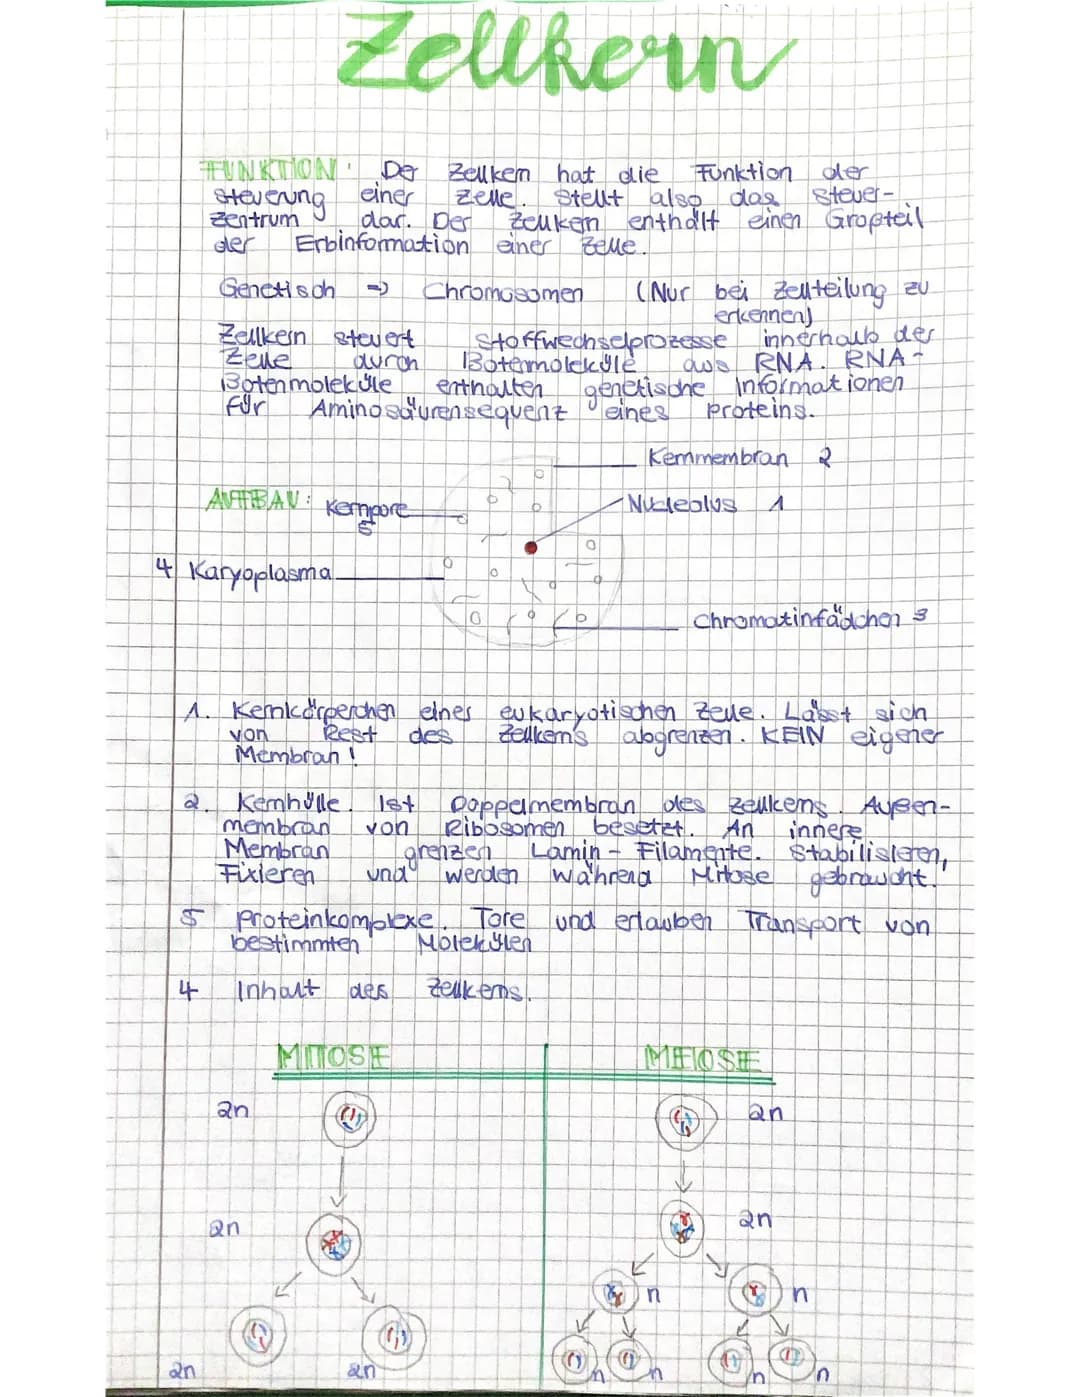 Zellkern
FUNKTION: Der Zellkern hat die Funktion der
Steuerung einer Zelle. Stellt also das Steuer-
zentrum dar. Der Zellkern enthält einen Großteil
der Erbinformation einer Zelle.
Genetisch => Chromosomen (Nur bei Zellteilung zu
erkennen)
Zellkern steuert Stoffwechselprozesse innerhalb der
Zelle durch Botenmoleküle aus RNA. RNA-
Botenmoleküle enthalten genetische Informationen
für Aminosäurensequenz eines Proteins.
Kernmembran 2
AUFBAU: Kernpore
5
Nucleolus 1
4 Karyoplasma
Chromatinfädchen 3
1. Kernkörperchen eines eukaryotischen Zelle. Lässt sich
von Rest des Zellkerns abgrenzen. KEIN eigener
Membran!
2. Kernhülle. Ist Doppelmembran des Zellkerns. Außen-
membran von Ribosomen besetzt. An innere
Membran grenzen Lamin-Filamente. Stabilisieren,
Fixieren und werden während Mitose gebraucht.
5 Proteinkomplexe. Tore und erlauben Transport von
bestimmten Molekülen
4 Inhalt des Zellkerns.
MITOSE MEIOSE
2n 2n
2n 2n
n n
2n 2n n n n n